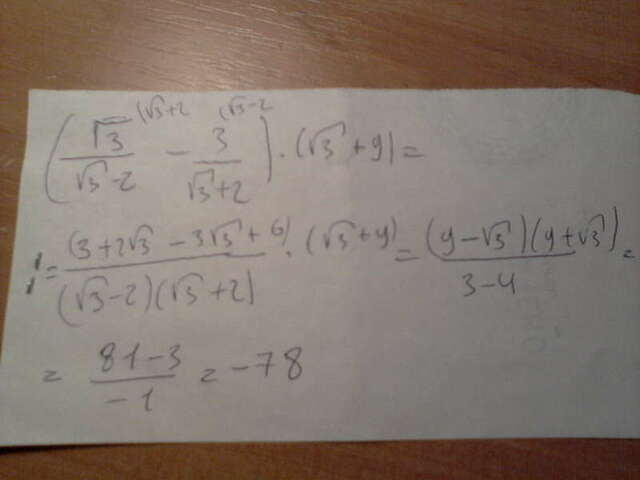 (√3/(√3-2) ^(√3+2 - 3/(√3+2) ^(√3-2) · (√3+9)=
= (3+2√3-3√3+6)/((√3-2)(√3+2)) · (√3+9) = (9-√3)(9+√3)/(3-4) =
= (81-3)/(-1) = -78